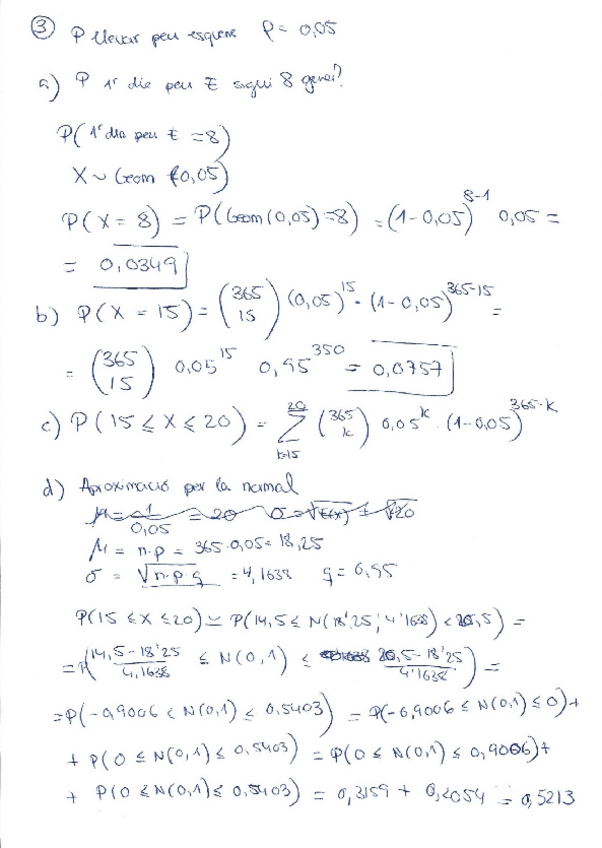 ③ P llevar peu esquerre P = 0,05
a) P 1r dia peu E sigui 8 gener?
P(1r dia peu E = 8)
X ~ Geom (0,05)
P(X = 8) = P(Geom(0,05) = 8) = (1 - 0,05)^{8-1} 0,05 =
= 0,0349
b) P(X = 15) = (365 15) (0,05)^{15} · (1 - 0,05)^{365-15} =
= (365 15) 0,05^{15} 0,95^{350} = 0,0757
c) P(15 ≤ X ≤ 20) = ∑_{k=15}^{20} (365 k) 0,05^k · (1-0,05)^{365-k}
d) Aproximació per la normal
μ = 1/0,05 = 20 σ = √E(x) = √20
μ = n·p = 365·0,05 = 18,25
σ = √n·p q = 4,1638 q = 0,95
P(15 ≤ X ≤ 20) ≃ P(14,5 ≤ N(18'25; 4'1638) < 20,5) =
= P(14,5 - 18'25 / 4,1638 ≤ N(0,1) ≤ 20,5 - 18'25 / 4'1638) =
= P(-0,9006 ≤ N(0,1) ≤ 0,5403) = P(-0,9006 ≤ N(0,1) ≤ 0) +
+ P(0 ≤ N(0,1) ≤ 0,5403) = P(0 ≤ N(0,1) ≤ 0,9006) +
+ P(0 ≤ N(0,1) ≤ 0,5403) = 0,3159 + 0,2054 = 0,5213